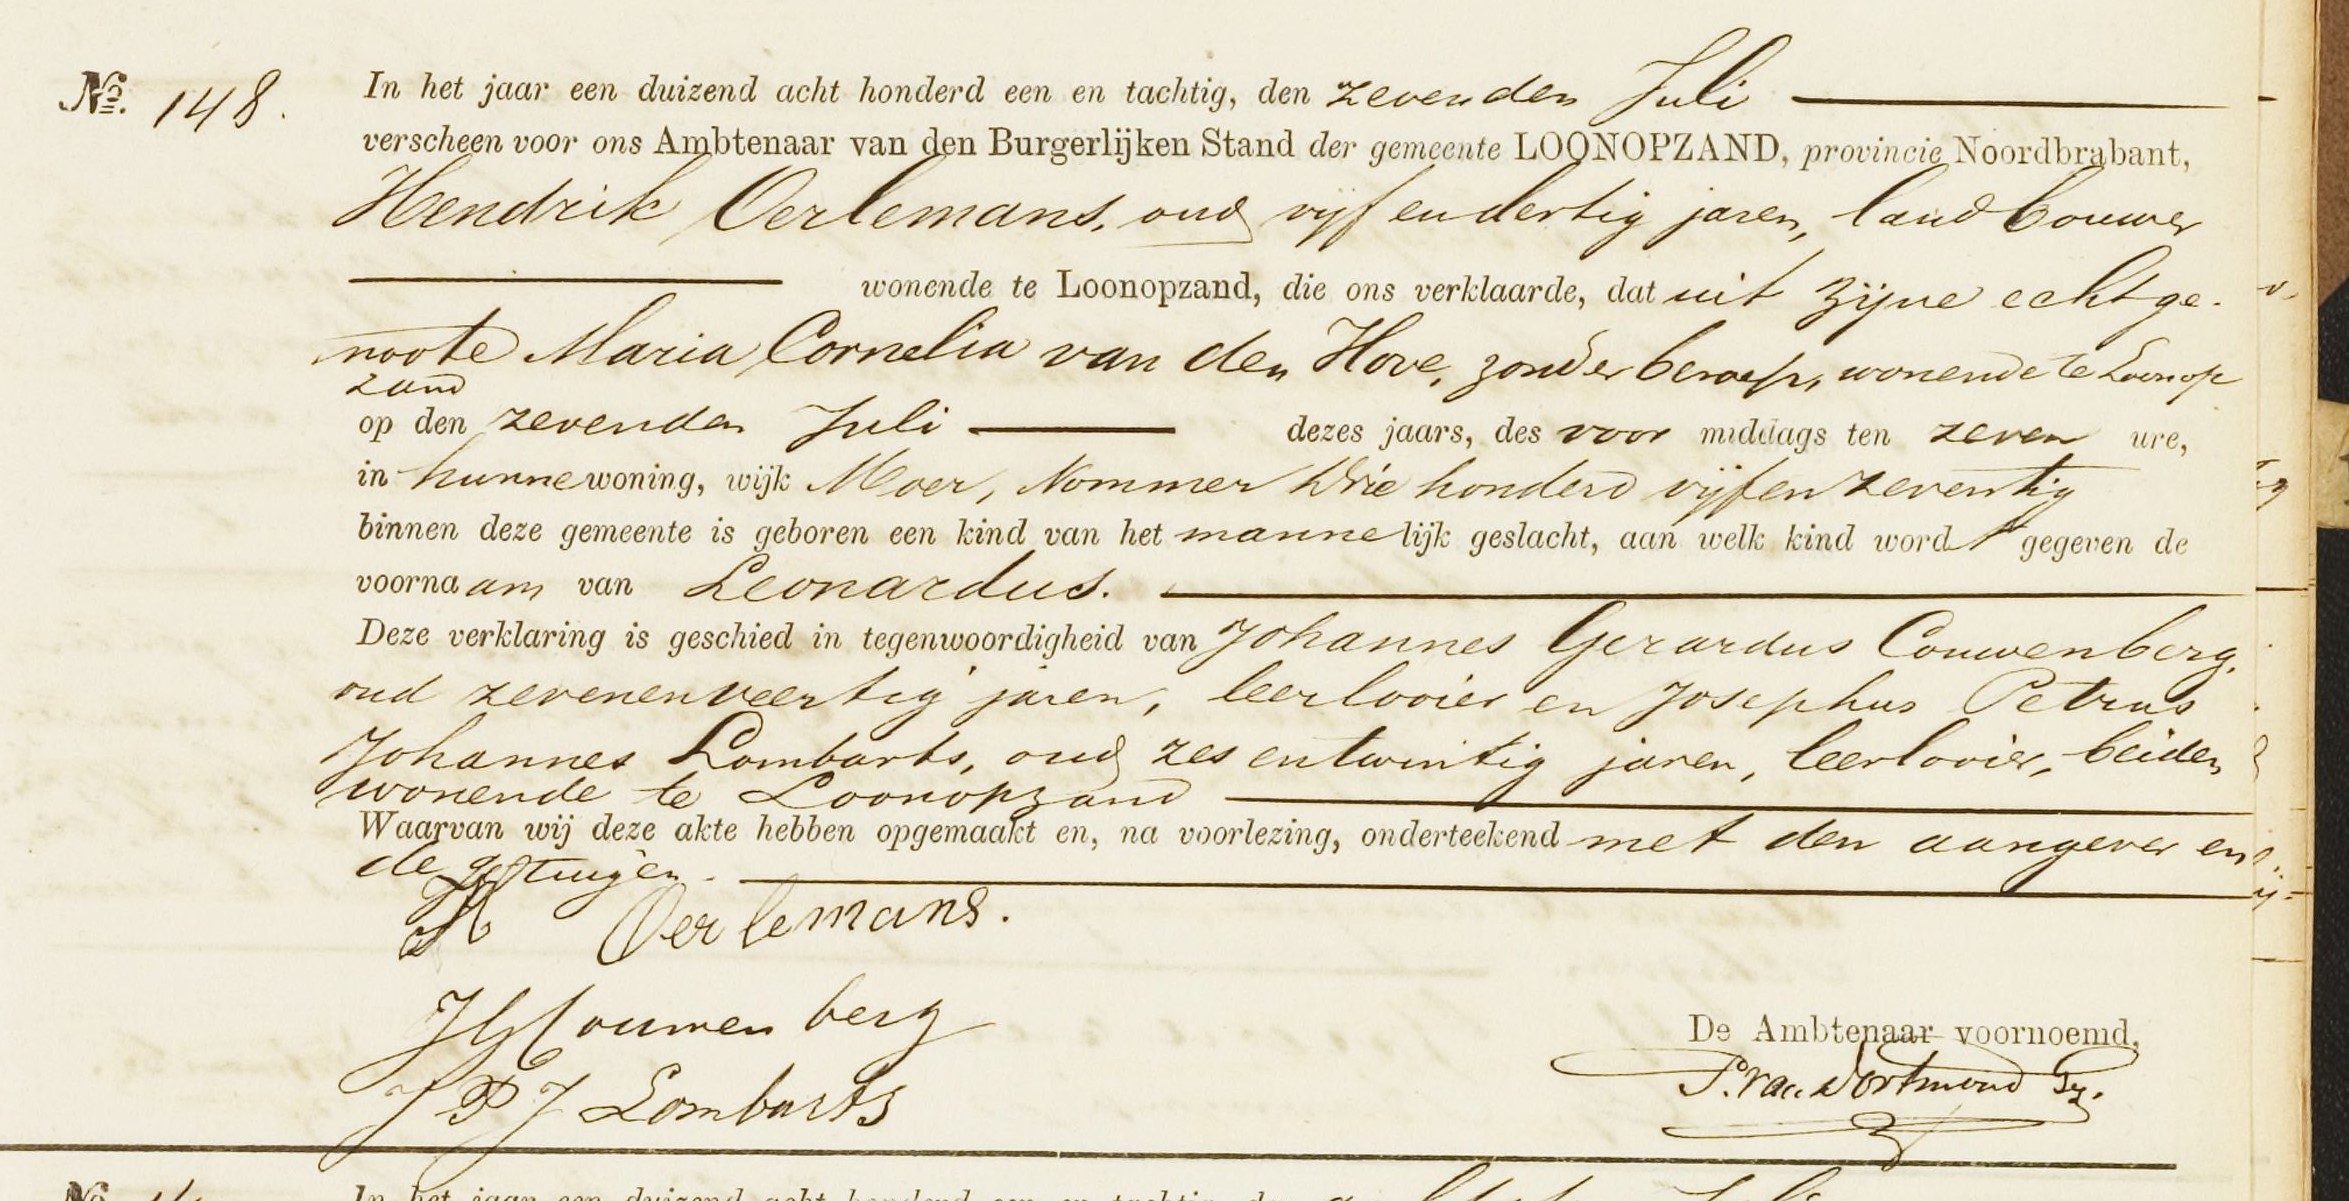 No. 148.
In het jaar een duizend acht honderd een en tachtig, den zevenden Juli
verscheen voor ons Ambtenaar van den Burgerlijken Stand der gemeente LOONOPZAND, provincie Noordbrabant,
Hendrik Oerlemans, oud vijfendertig jaren, landbouwer
wonende te Loonopzand, die ons verklaarde, dat uit zijne echtge-
noote Maria Cornelia van den Hove, zonder beroep, wonende te Loonop
zand
op den zevenden Juli dezes jaars, des voor middags ten zeven ure,
in hunne woning, wijk Moer, Nommer driehonderd vijfenzeventig
binnen deze gemeente is geboren een kind van het mannelijk geslacht, aan welk kind wordt gegeven de
voornaam van Leonardus.
Deze verklaring is geschied in tegenwoordigheid van Johannes Gerardus Couwenberg,
oud zevenenveertig jaren, leerlooier en Josephus Petrus
Johannes Lombarts, oud zesentwintig jaren, leerlooier, beiden
wonende te Loonopzand
Waarvan wij deze akte hebben opgemaakt en, na voorlezing, onderteekend met den aangever en
de getuigen.
H Oerlemans.
JG Couwenberg
J P J Lombarts
De Ambtenaar voornoemd,
P. van Dortmond Pz.
No.
In het jaar een duizend acht honderd een en tachtig, den Juli